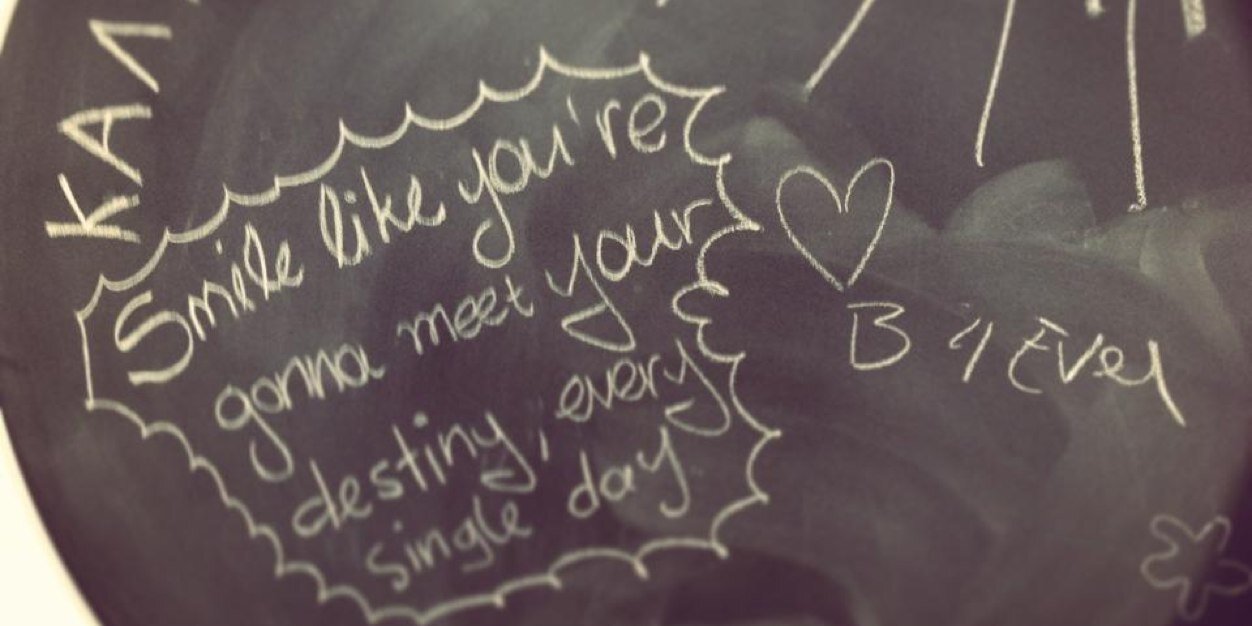 Smile like you're
gonna meet your
destiny, every
single day
B 4 Ever